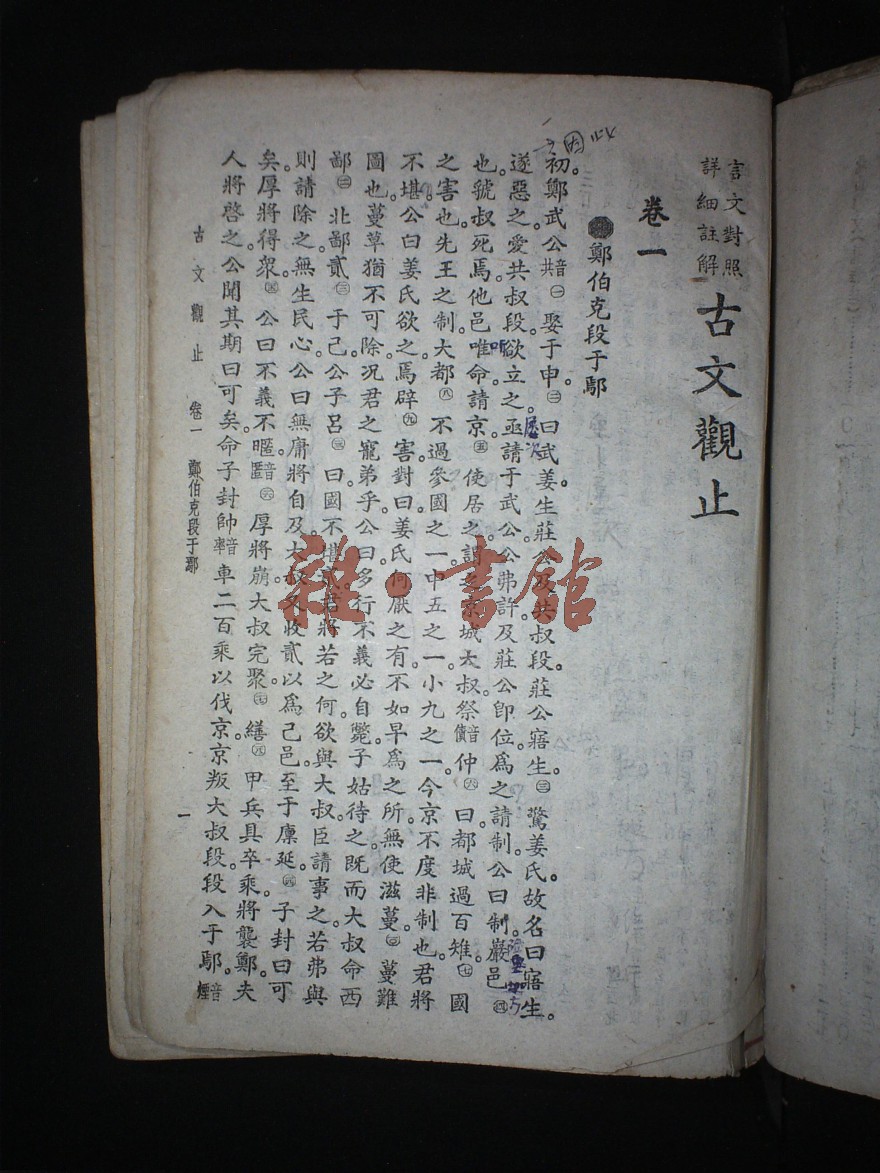 言文對照
詳細註解
古文觀止
卷一
鄭伯克段于鄢
初。鄭武公音共㊀娶于申。㊁曰武姜生莊公及共叔段。莊公寤生。㊂驚姜氏。故名曰寤生。
遂惡之。愛共叔段。欲立之。亟請于武公。公弗許。及莊公卽位。爲之請制。公曰。制。巖邑㊃
也。虢叔死焉。他邑唯命。請京。㊄使居之。謂之京城大叔。祭音債仲㊅曰。都城過百雉。㊆國
之害也。先王之制。大都㊇不過參國之一。中五之一。小九之一。今京不度。非制也。君將
不堪。公曰。姜氏欲之。焉辟㊈害。對曰。姜氏何厭之有。不如早爲之所。無使滋蔓。蔓難
圖也。蔓草猶不可除。況君之寵弟乎。公曰。多行不義。必自斃。子姑待之。旣而大叔命西
鄙 北鄙貳 于己。公子呂 曰。國不堪貳。君將若之何。欲與大叔。臣請事之。若弗與
則請除之。無生民心。公曰。無庸。將自及。大叔又收貳以爲己邑。至于廩延。 子封曰。可
矣。厚將得衆。 公曰。不義不暱。音匿 厚將崩。大叔完聚。 繕 甲兵。具卒乘。將襲鄭。夫
人將啓之。公聞其期。曰可矣。命子封帥音率車二百乘以伐京。京叛大叔段。段入于鄢。音煙
古文觀止 卷一 鄭伯克段于鄢
一
因此
雜·書館